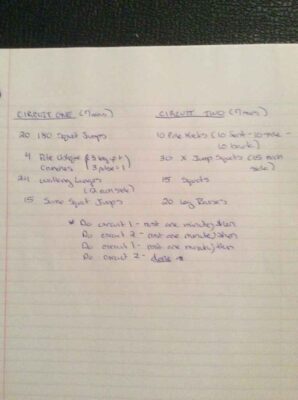 CIRCUIT ONE (7 mins)
20 180 Squat Jumps
4
Crunches 3 pulse = 1
24 Walking Lunges
(12 each side)
15 Sumo Squat Jumps
CIRCUIT TWO (7 mins)
10 (10 front - 10 -
10 back)
30 X Jump Squats (15 each
side)
15 Squats
20 Leg Raises
* Do circuit 1 - rest one minute, then
Do circuit 2 - rest one minute, then
Do circuit 1 - rest one minute, then
Do circuit 2 - done *